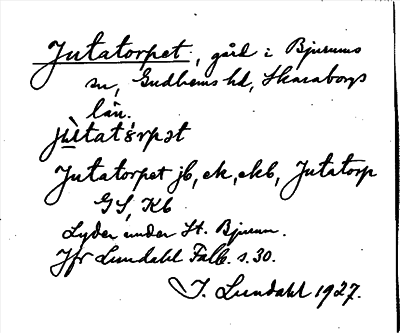 Jutatorpet, gård i Bjurums
sn, Gudhems hd, Skaraborgs
län.
jùtatårpət
Jutatorpet jb, ek, ekb, Jutatorp
GS, Kb
Lyder under St. Bjurum.
Jfr Lundahl Falb. s. 30.
I. Lundahl 1927.